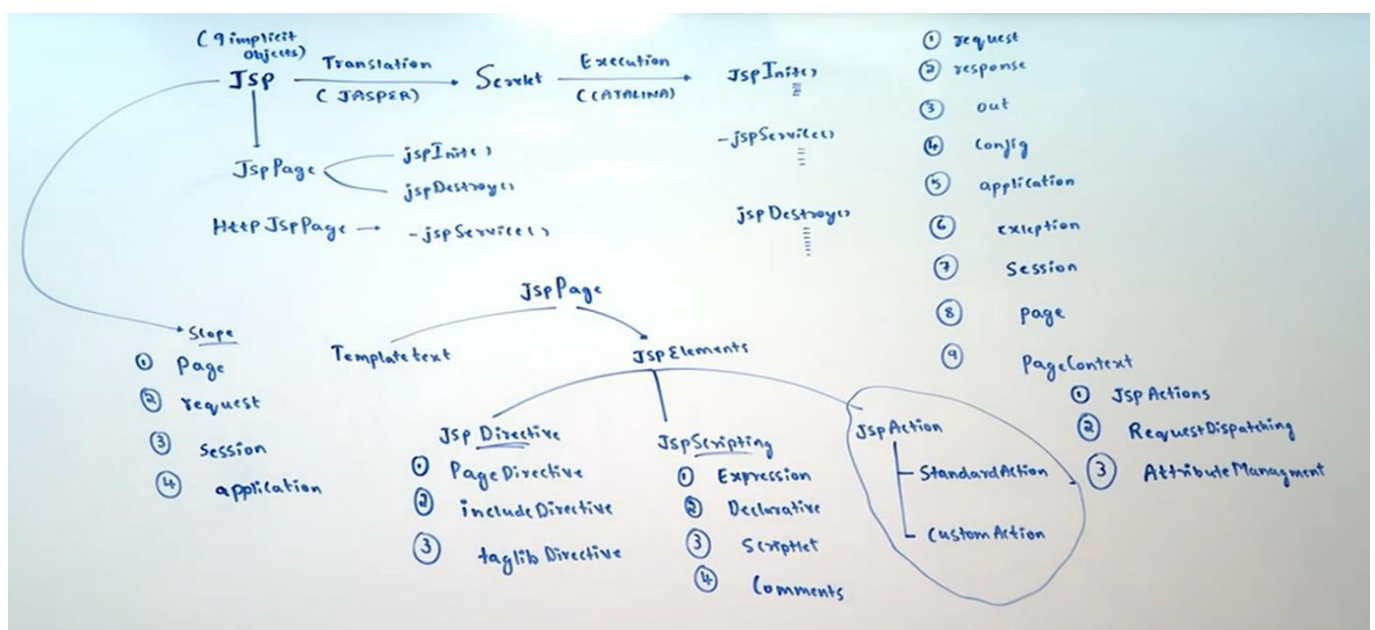 (9 implicit
objects)
Jsp
Translation
(JASPER)
Servlet
Execution
(CATALINA)
JspInit()
-jspService()
jspDestroy()
JspPage
jspInit()
jspDestroy()
HttpJspPage → -jspService()
① request
② response
③ out
④ Config
⑤ application
⑥ exception
⑦ Session
⑧ page
⑨ PageContext
① JspActions
② RequestDispatching
③ AttributeManagment
Scope
① Page
② request
③ Session
④ application
JspPage
Templatetext
JspElements
Jsp Directive
① PageDirective
② includeDirective
③ taglib Directive
JspScripting
① Expression
② Declarative
③ Scriptlet
④ Comments
JspAction
StandardAction
CustomAction